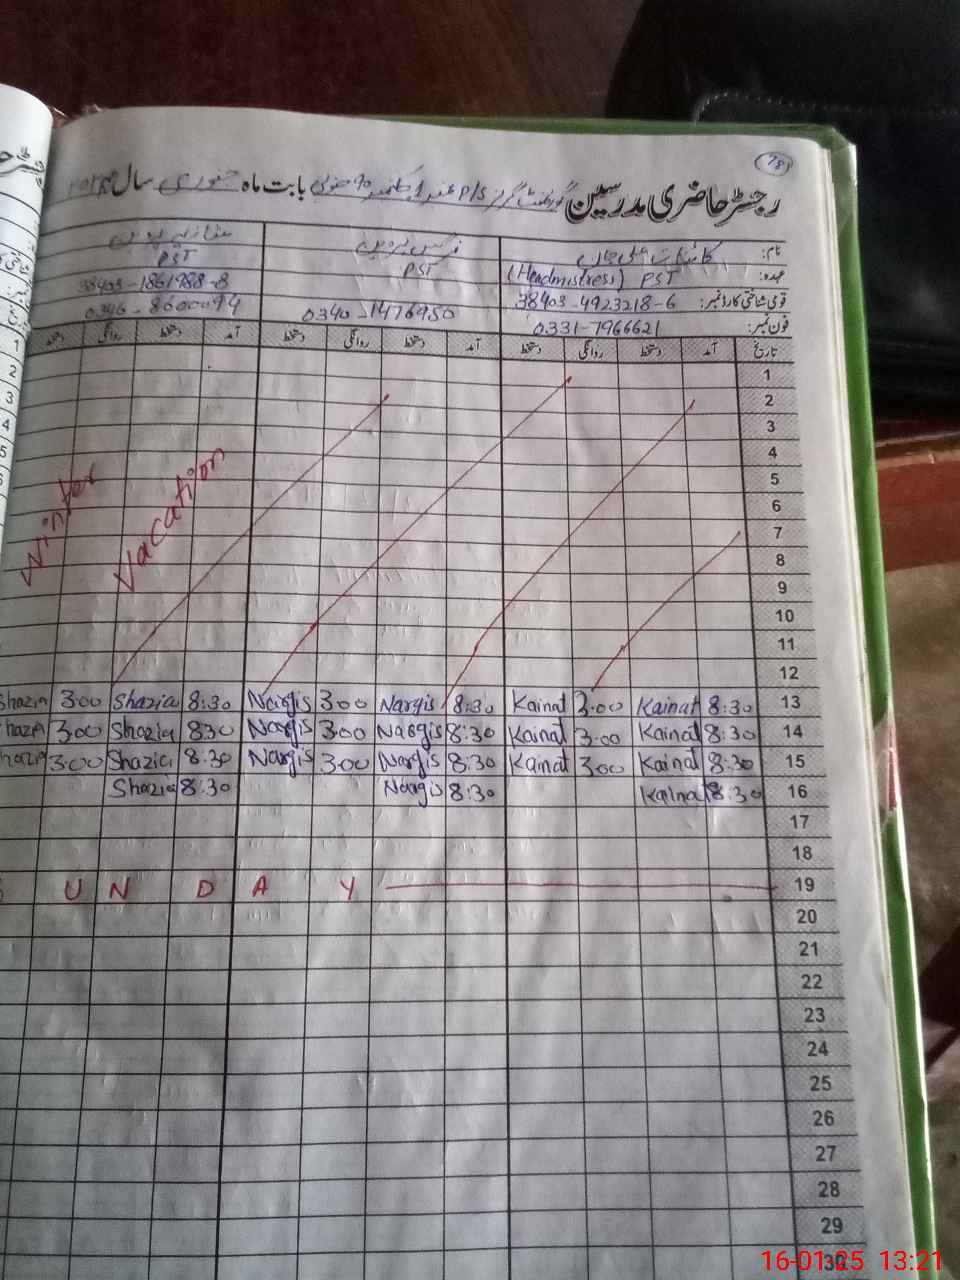 78
رجسٹر حاضری مدرسین گورنمنٹ گرلز P/S بابت ماہ جنوری سال
نام: کائنات
نرگس پروین
شازیہ پروین
عہدہ: PST (Headmistress)
PST
PST
قومی شناختی کارڈ نمبر: 38403-4923218-6
38403-1861988-8
فون نمبر: 0331-7966621
0340-1476950
0346-8600094
تاریخ آمد دستخط روانگی دستخط آمد دستخط روانگی دستخط آمد دستخط روانگی دستخط
1
2
3
4
5
6
7
8
9
10
11
12
Winter Vacation
Shazia 3:00 Shazia 8:30 Nargis 300 Nargis 8:30 Kainat 3:00 Kainat 8:30 13
Shazia 300 Shazia 830 Nargis 300 Nargis 8:30 Kainat 3:00 Kainat 8:30 14
Shazia 300 Shazia 8:30 Nargis 300 Nargis 8:30 Kainat 300 Kainat 8:30 15
Shazia 8:30 Nargis 8:30 Kainat 8:30 16
17
18
S U N D A Y 19
20
21
22
23
24
25
26
27
28
29
30
16-01-25 13:21